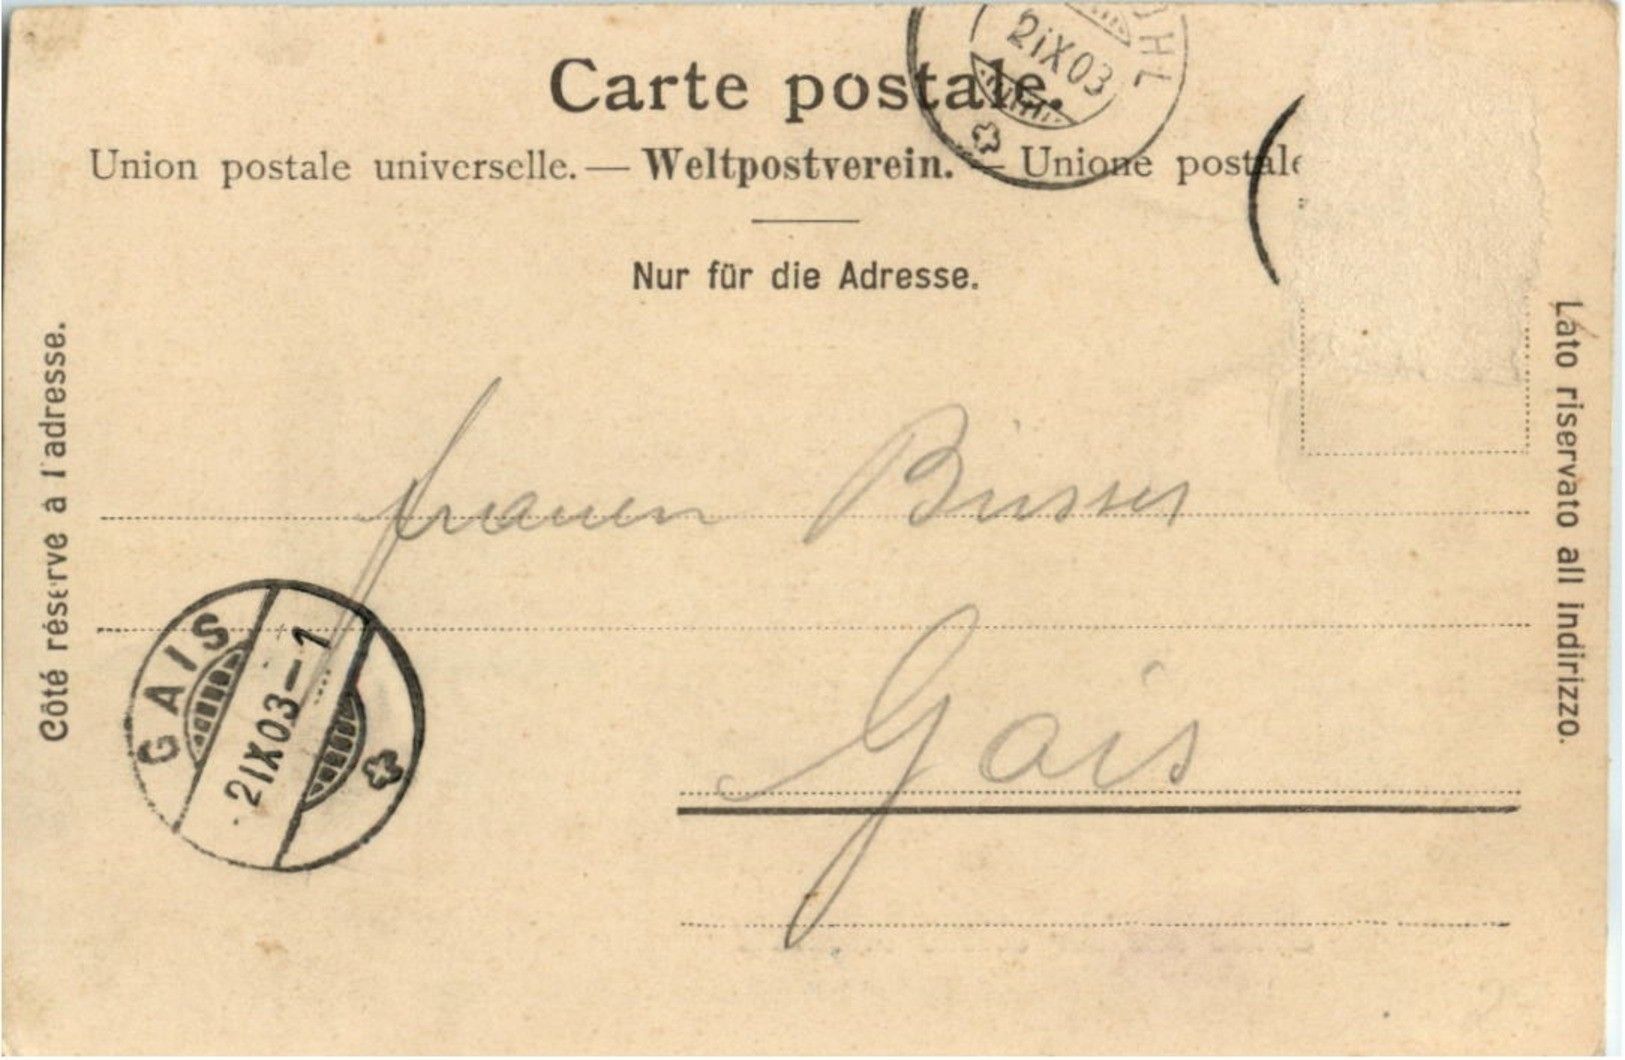 Carte postale.
Union postale universelle. — Weltpostverein. — Unione postale
Nur für die Adresse.
Côté réservé à l'adresse.
Lato riservato all indirizzo.
21X03
GAIS
21X03–1
Gais